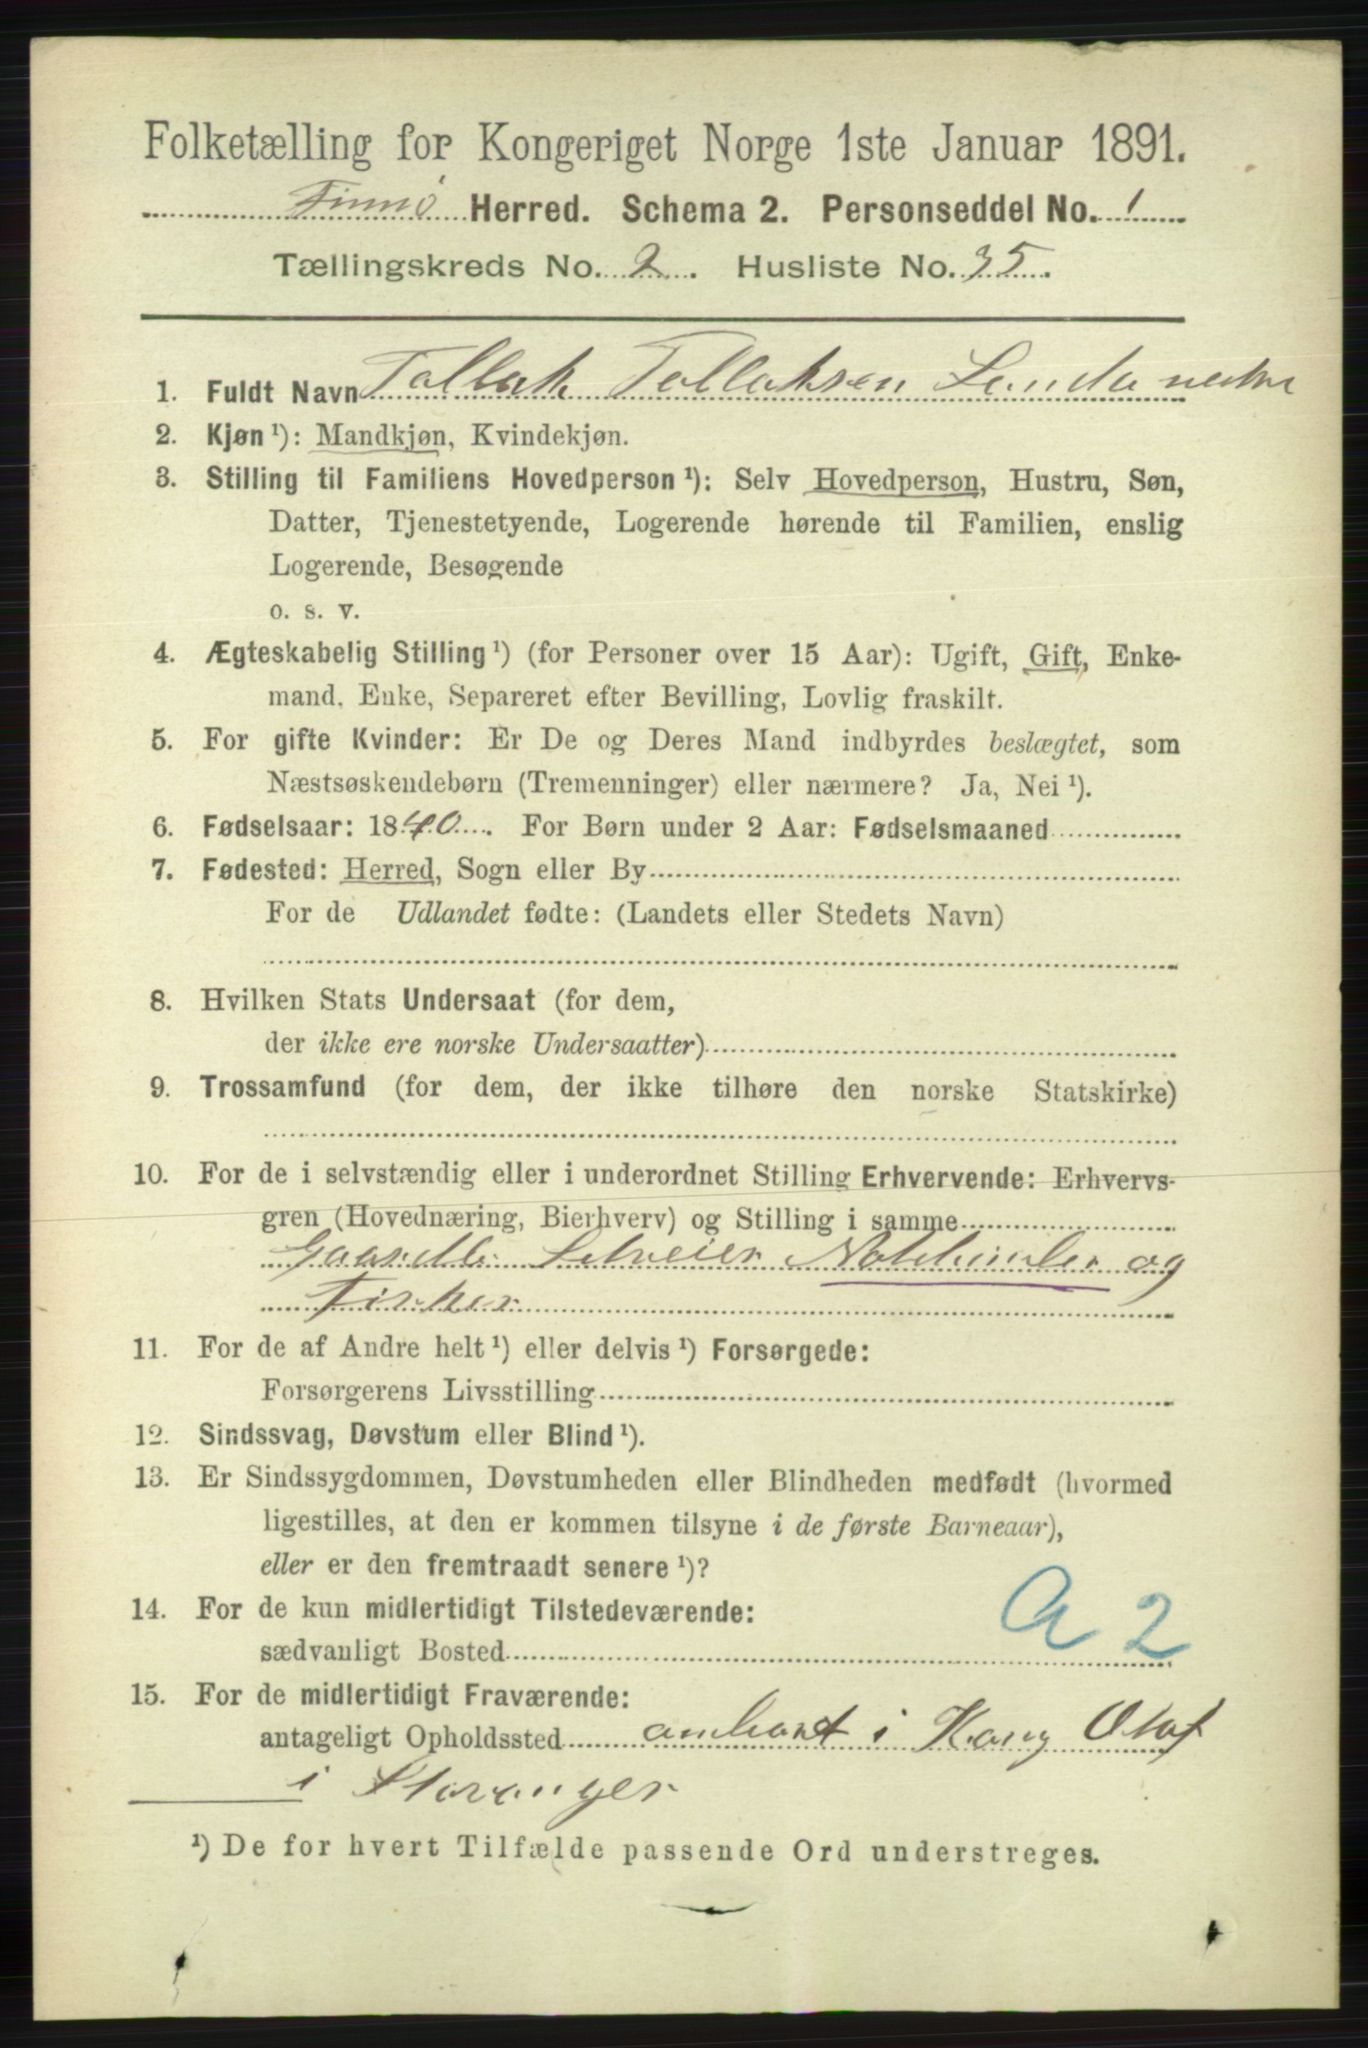 Folketælling for Kongeriget Norge 1ste Januar 1891.
Finnø Herred. Schema 2. Personseddel No. 1
Tællingskreds No. 2. Husliste No. 35.
1. Fuldt Navn Tollak Tollaksen Lende nedre
2. Kjøn ¹): Mandkjøn, Kvindekjøn.
3. Stilling til Familiens Hovedperson ¹): Selv Hovedperson, Hustru, Søn,
Datter, Tjenestetyende, Logerende hørende til Familien, enslig
Logerende, Besøgende
o. s. v.
4. Ægteskabelig Stilling ¹) (for Personer over 15 Aar): Ugift, Gift, Enke-
mand, Enke, Separeret efter Bevilling, Lovlig fraskilt.
5. For gifte Kvinder: Er De og Deres Mand indbyrdes beslægtet, som
Næstsøskendebørn (Tremenninger) eller nærmere? Ja, Nei ¹).
6. Fødselsaar: 1840. For Børn under 2 Aar: Fødselsmaaned
7. Fødested: Herred, Sogn eller By
For de Udlandet fødte: (Landets eller Stedets Navn)
8. Hvilken Stats Undersaat (for dem,
der ikke ere norske Undersaatter)
9. Trossamfund (for dem, der ikke tilhøre den norske Statskirke)
10. For de i selvstændig eller i underordnet Stilling Erhvervende: Erhvervs-
gren (Hovednæring, Bierhverv) og Stilling i samme
Gaardbr. Selveier Nothbinder og
Fisker
11. For de af Andre helt ¹) eller delvis ¹) Forsørgede:
Forsørgerens Livsstilling
12. Sindssvag, Døvstum eller Blind ¹).
13. Er Sindssygdommen, Døvstumheden eller Blindheden medfødt (hvormed
ligestilles, at den er kommen tilsyne i de første Barneaar),
eller er den fremtraadt senere ¹)?
14. For de kun midlertidigt Tilstedeværende:
sædvanligt Bosted
a 2
15. For de midlertidigt Fraværende:
antageligt Opholdssted ombord i Kong Olaf
i Stavanger
¹) De for hvert Tilfælde passende Ord understreges.